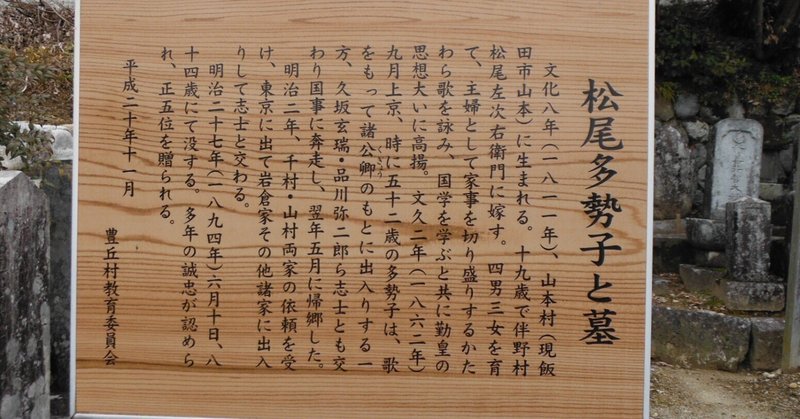 松尾多勢子と墓
文化八年(一八一一年)、山本村(現飯
田市山本)に生まれる。十九歳で伴野村
松尾左次右衛門に嫁す。四男三女を育
て、主婦として家事を切り盛りするかた
わら歌を詠み、国学を学ぶと共に勤皇の
思想大いに高揚。文久二年(一八六二年)
九月上京、時に五十二歳の多勢子は、歌
をもって諸公卿のもとに出入りする一
くぎょう
方、久坂玄瑞・品川弥二郎ら志士とも交
わり国事に奔走し、翌年五月に帰郷した。
明治二年、千村・山村両家の依頼を受
け、東京に出て岩倉家その他諸家に出入
りして志士と交わる。
明治二十七年(一八九四年)六月十日、八
十四歳にて没する。多年の誠忠が認めら
れ、正五位を贈られる。
平成二十年十一月
豊丘村教育委員会